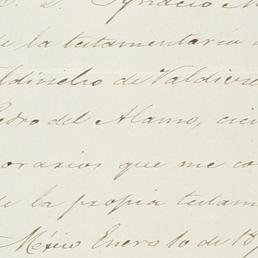 D. D. Ignacio M
de la testamentaria
de Valdivie
Pedro del Alamo,
orarios que me co
de la propia testam
México Enero 10 de 18